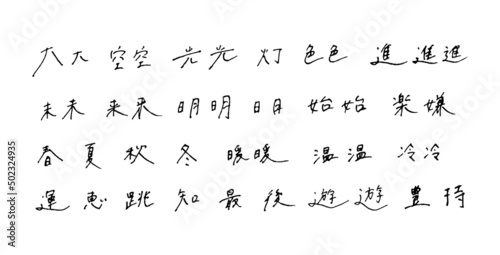 大大 空空 光光 灯 色色 進進進
未未 来来 明明 明 始始 楽嫌
春 夏 秋 冬 暖暖 温温 冷冷
運 恵 跳 知 最 後 遊遊 豊 持
Adobe Stock | #502324935